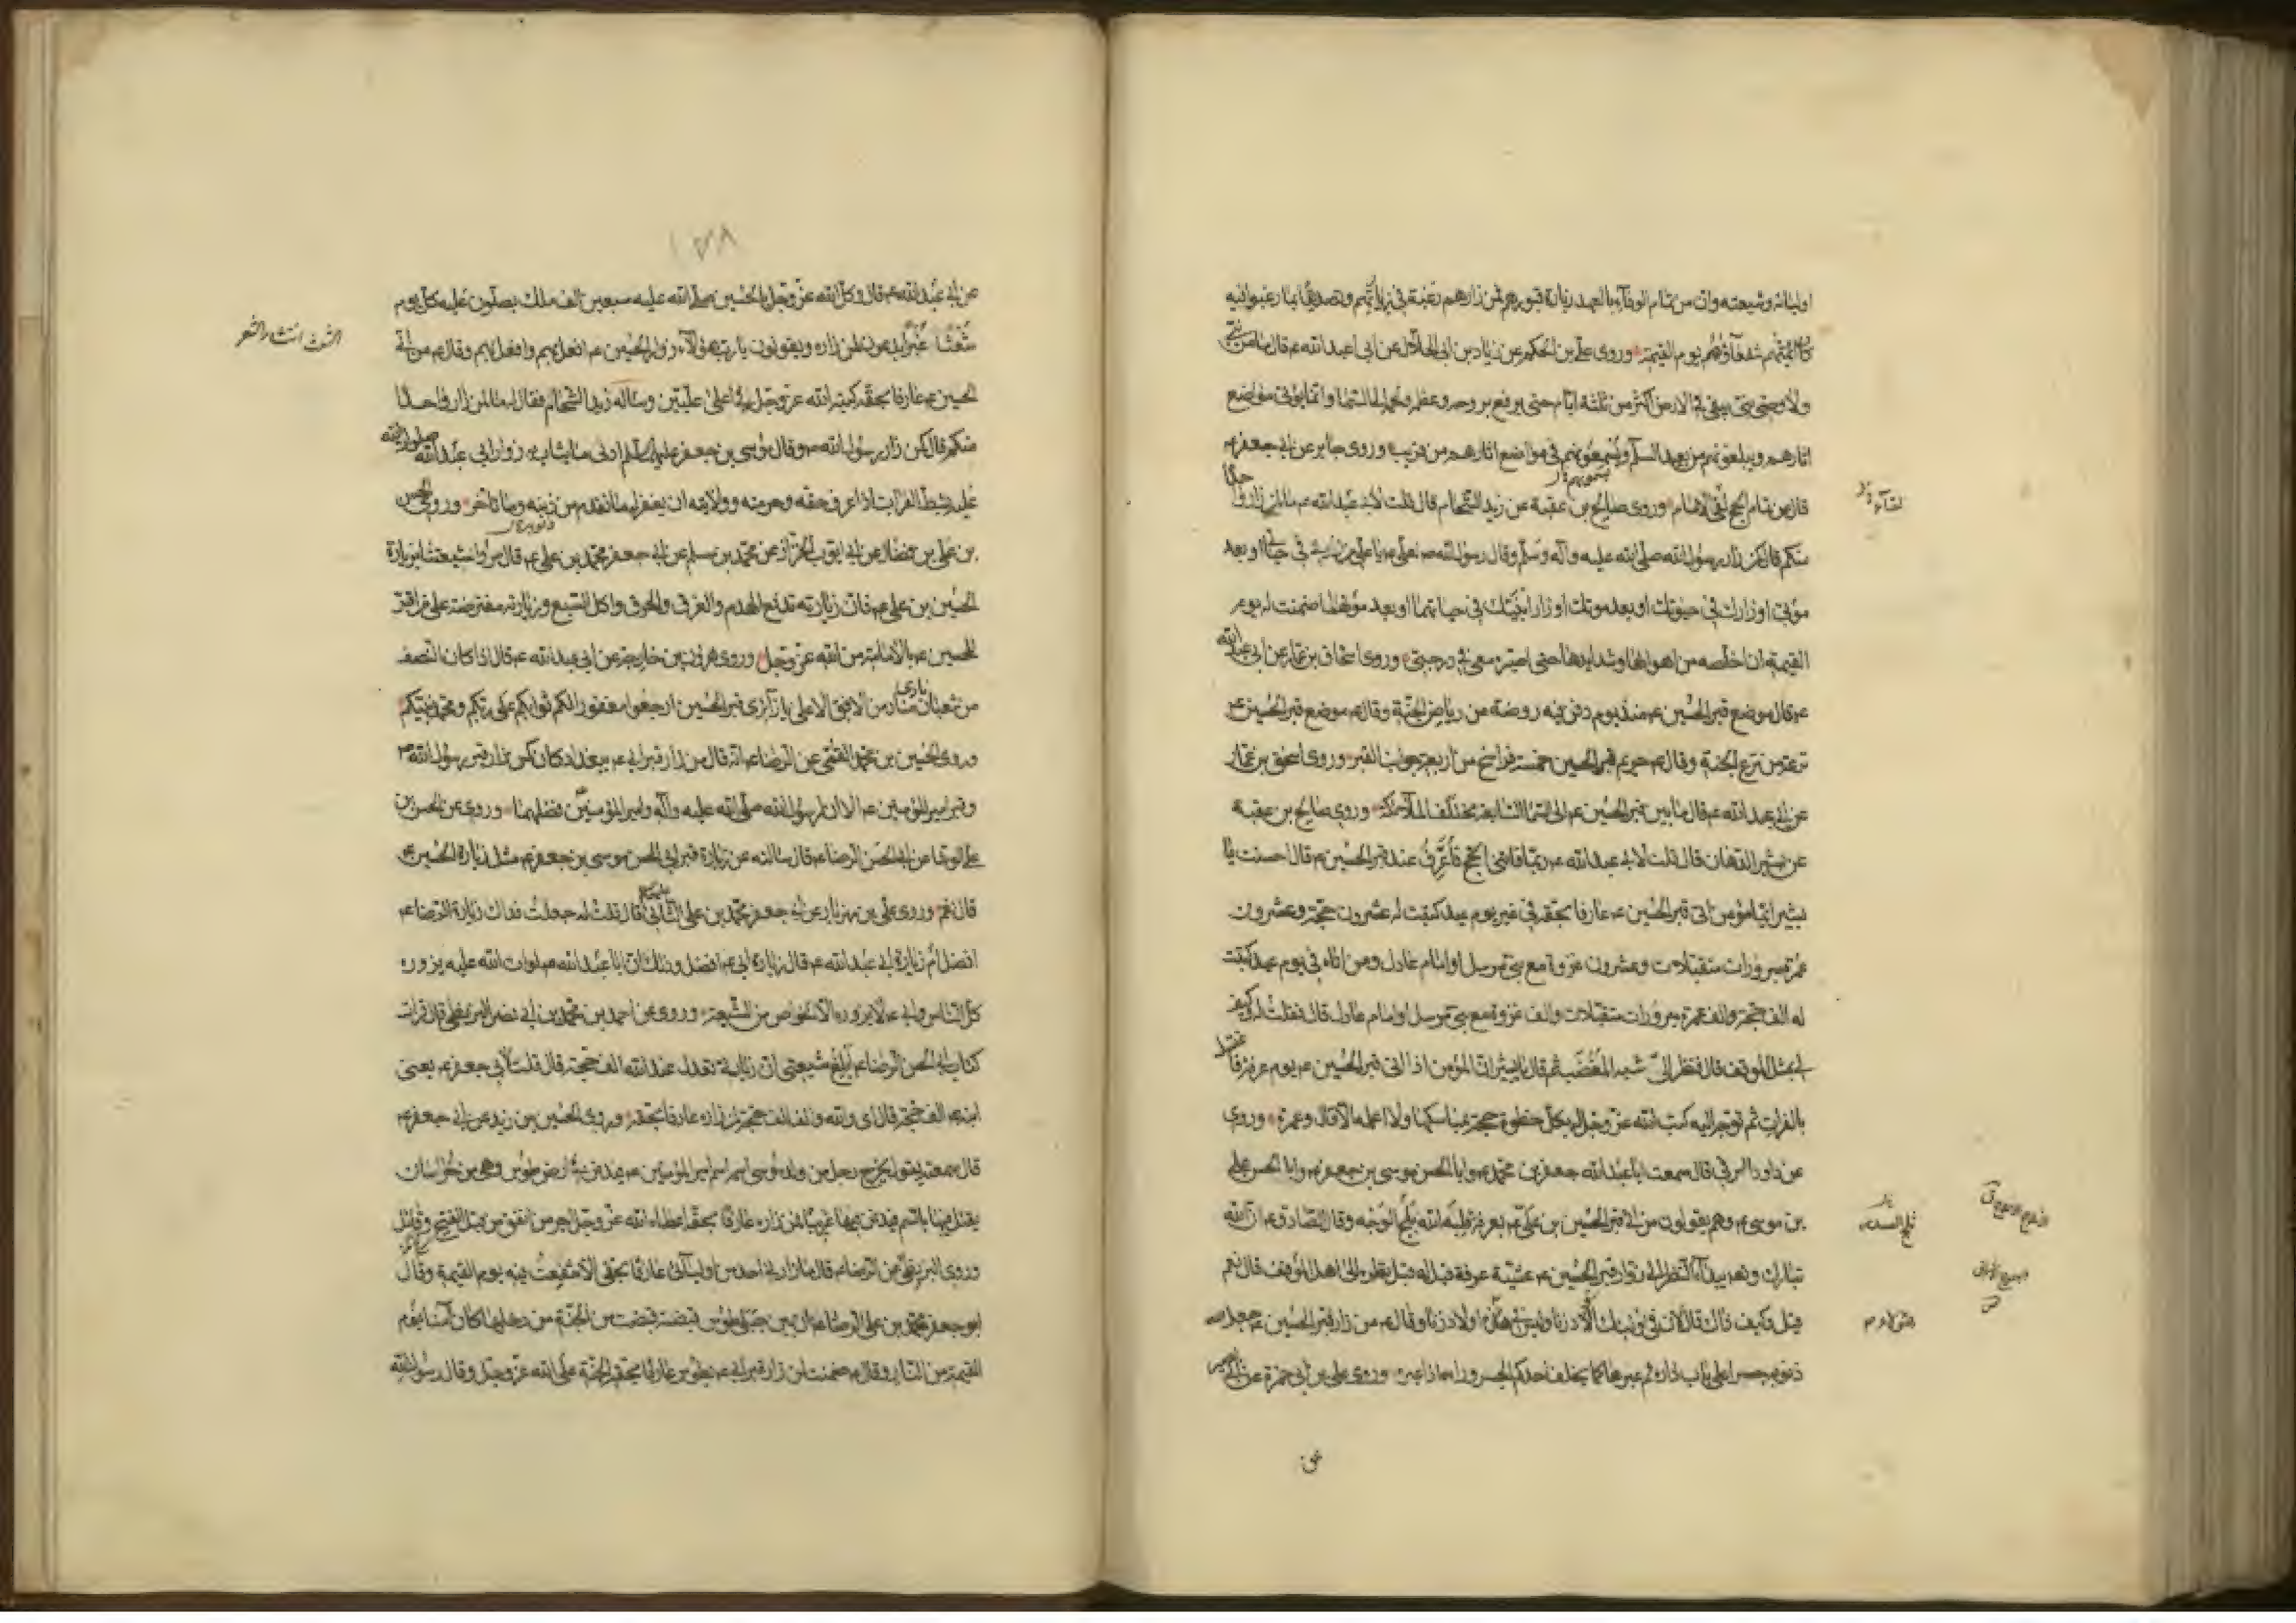 اوليائه وشيعته وان من تمام الوفاء بالعهد زيارة قبورهم فمن زارهم رغبة في زيارتهم وتصديقا بما رغبوا فيه
كان ائمتهم شفعاؤهم يوم القيمة وروى علي بن الحكم عن زياد بن ابى الحلال عن ابى عبد الله ع قال ما من نبي
ولا وصي نبي يبقى في الارض اكثر من ثلثة ايام حتى يرفع بروحه وعظمه ولحمه الى السما وانما يؤتى مواضع
اثارهم ويبلغونهم من بعيد السلم ويسمعونهم في مواضع اثارهم من قريب وروى جابر عن ابي جعفر ع
قال من تمام الحج لقى الامام وروى صالح بن عقبة عن زيد الشحام قال قلت لابي عبد الله ع ما لمن زار واحدا
منكم قال كمن زار رسول الله صلى الله عليه وآله وسلم وقال رسول الله ص لعلي ع يا علي من زارني في حياتي او بعد
موتي او زارك في حيوتك او بعد موتك او زار ابنيك في حياتهما او بعد موتهما ضمنت له يوم
القيمة ان اخلصه من اهوالها وشدايدها حتى اصيره معي في درجتي وروى اسحاق بن عمار عن ابى عبد الله
ع قال موضع قبر الحسين ع منذ يوم دفن فيه روضة من رياض الجنة وقال ع موضع قبر الحسين ع
ترعة من ترع الجنة وقال ع حريم قبر الحسين خمسة فراسخ من اربعة جوانب القبر وروى اسحق بن عمار
عن ابي عبد الله ع قال ما بين قبر الحسين ع الى السما السابعة مختلف الملائكة وروى صالح بن عقبة
عن بشير الدهان قال قلت لابي عبد الله ع ربما فاتني الحج فاعرف عند قبر الحسين ع قال احسنت يا
بشير ايما مؤمن اتى قبر الحسين ع عارفا بحقه في غير يوم عيد كتبت له عشرون حجة وعشرون
عمرة مبرورات متقبلات وعشرون غزوة مع نبي مرسل او امام عادل ومن اتاه في يوم عيد كتبت
له الف حجة والف عمرة مبرورات متقبلات والف غزوة مع نبي مرسل او امام عادل قال فقلت له وكيف
لي بمثل الموقف قال فنظر الي شبه المغضب ثم قال يا بشير ان المؤمن اذا اتى قبر الحسين ع يوم عرفة فاغتسل
بالفرات ثم توجه اليه كتب الله عز وجل له بكل خطوة حجة بمناسكها ولا اعلمه الا قال وعمرة وروى
عن داود الرقي قال سمعت ابا عبد الله جعفر بن محمد ع وابا الحسن موسى بن جعفر ع وابا الحسن علي
بن موسى ع وهم يقولون من اتى قبر الحسين بن علي ع بعرفة قلبه الله ثلج الوجه وقال الصادق ع ان الله
تبارك وتعم يبدأ بالنظر الى زوار قبر الحسين ع عشية عرفة قيل له قبل نظره الى اهل الموقف قال نعم
قيل وكيف ذاك قال لان في اولئك اولاد زنا وليس في هؤلاء اولاد زنا وقال ع من زار قبر الحسين ع جعل
ذنوبه جسرا على باب داره ثم عبرها كما يخلف احدكم الجسر وراءه اذا عبره وروى علي بن ابي حمزة عن ابى بصير
عن
١٣٨
عن ابي عبد الله ع قال وكل الله عز وجل بالحسين صلى الله عليه سبعين الف ملك يصلون عليه كل يوم
شعثا غبرا يدعون لمن زاره ويقولون يا رب هؤلاء زوار الحسين ع افعل بهم وافعل بهم وقال ع من اتى
الحسين ع عارفا بحقه كتبه الله عز وجل في اعلى عليين وساله زيد الشحام فقال له ما لمن زار واحدا
منكم قال كمن زار رسول الله ص وقال موسى بن جعفر عليهما السلم ادنى ما يثاب به زوار ابي عبد الله صلوات الله
عليه بشط الفرات اذا عرف حقه وحرمته وولايته ان يغفر له ما تقدم من ذنبه وما تاخر وروى الحسن
بن علي بن فضال عن ابي ايوب الخزاز عن محمد بن مسلم عن ابي جعفر محمد بن علي ع قال مروا شيعتنا بزيارة
الحسين بن علي ع فان زيارته تدفع الهدم والغرق والحرق واكل السبع وزيارته مفترضة على من اقر
للحسين ع بالامامة من الله عز وجل وروى هرون بن خارجة عن ابى عبد الله ع قال اذا كان النصف
من شعبان نادى مناد من الافق الاعلى يا زائرى قبر الحسين ارجعوا مغفورا لكم ثوابكم على ربكم ومحمد نبيكم
وروى الحسين بن محمد القمي عن الرضا ع انه قال من زار قبر ابي ع ببغداد كان كمن زار قبر رسول الله ص
وقبر امير المؤمنين ع الا ان لرسول الله صلى الله عليه وآله وامير المؤمنين فضلهما وروى عن الحسن بن
علي الوشا عن ابي الحسن الرضا ع قال سالته عن زيارة قبر ابى الحسن موسى بن جعفر ع مثل زيارة الحسين ع
قال نعم وروى علي بن مهزيار عن ابي جعفر محمد بن علي الثاني قال قلت له جعلت فداك زيارة الرضا ع
افضل ام زيارة ابي عبد الله ع قال زيارة ابي ع افضل وذلك ان ابا عبد الله صلوات الله عليه يزوره
كل الناس وابي ع لا يزوره الا الخواص من الشيعة وروى عن احمد بن محمد بن ابي نصر البزنطي قال قرات
كتاب ابي الحسن الرضا ع ابلغ شيعتي ان زيارتي تعدل عند الله الف حجة قال قلت لابي جعفر ع يعنى
ابنه ع الف حجة قال اى والله والف الف حجة لمن زاره عارفا بحقه وروى الحسين بن زيد عن ابي جعفر ع
قال سمعته يقول يخرج رجل من ولد موسى اسمه اسم امير المؤمنين ع يدفن في ارض طوس وهى بن خراسان
يقتل فيها بالسم فيدفن فيها غريبا من زاره عارفا بحقه اعطاه الله عز وجل اجر من انفق من قبل الفتح وقاتل
وروى البزنطي عن الرضا ع قال ما زارني احد من اوليائى عارفا بحقى الا شفعت فيه يوم القيمة وقال
ابو جعفر محمد بن علي الرضا ع ان بين جبلي طوس قبضة قبضت من الجنة من دخلها كان آمنا يوم
القيمة من النار وقال ع ضمنت لمن زار قبر ابي ع بطوس عارفا بحقه الجنة على الله عز وجل وقال رسول الله
الشعث انتشار الشعر